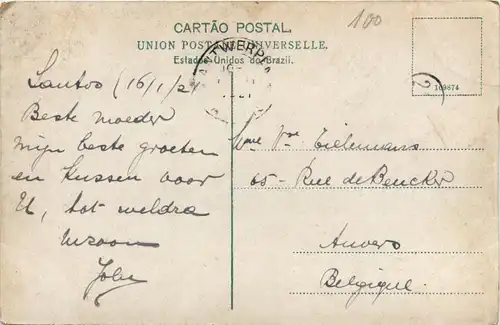 CARTÃO POSTAL.
UNION POSTALE UNIVERSELLE.
Estados Unidos do Brazil.
100
ANTWERPEN
2
109874
Santos (16/1/21
Beste moeder
Mijn beste groeten
en kussen voor
U, tot weldra
Uw zoon
John
Mme Vve Tielemans
65 - Rue de Beucker
Anvers
Belgique.